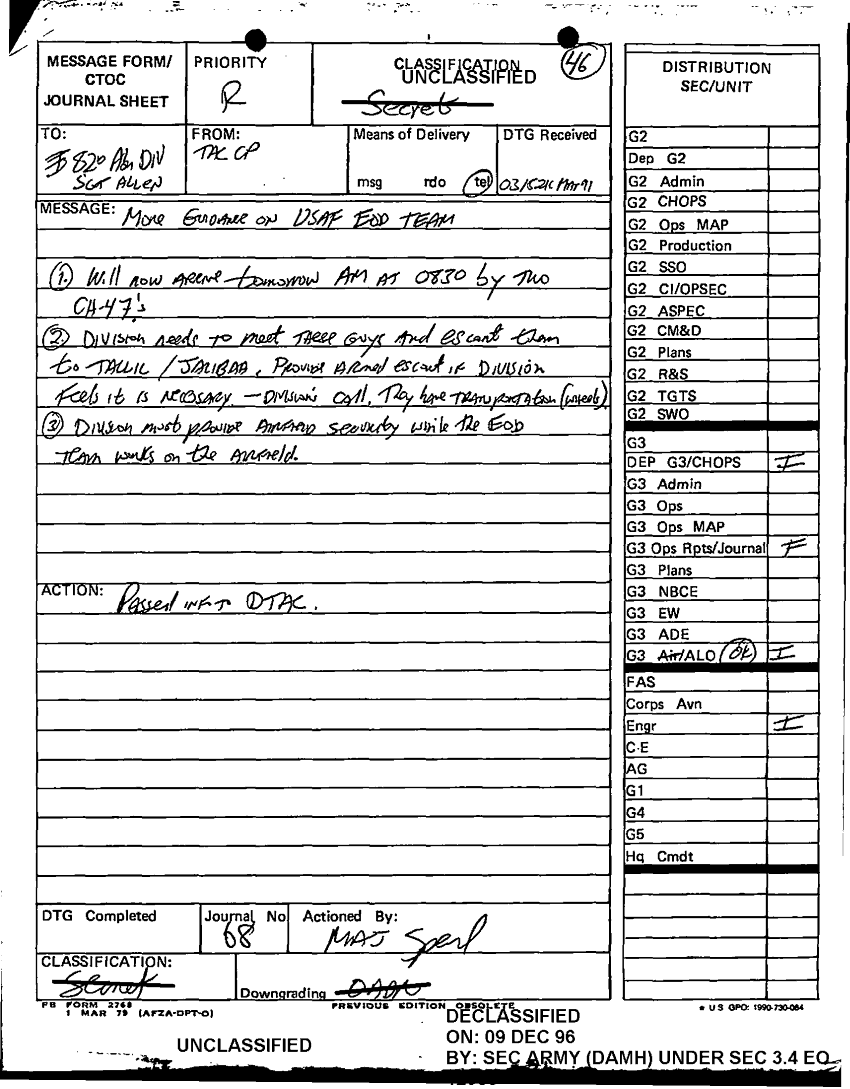 MESSAGE FORM/
CTOC
JOURNAL SHEET
PRIORITY
R
CLASSIFICATION
UNCLASSIFIED
Secret
46
TO:
82D Abn DIV
SGT ALLEN
FROM:
TAC CP
Means of Delivery
msg rdo tel
DTG Received
MAR 91
MESSAGE: More Guidance on USAF EOD TEAM
(1.) Will now arrive tomorrow AM AT 0830 by two
CH-47's
(2.) DIVISION needs to meet these guys and escort them
to TALLIL / JALIBAH, Provide Armed escort if DIVISION
Feels it is necessary. — Division's call, They have transportation (wheels)
(3) Division must provide Airfield security while the EOD
Team works on the airfield.
ACTION: Passed info to DTAC.
DTG Completed
Journal No
68
Actioned By:
MAJ Sperl
CLASSIFICATION:
Secret
Downgrading OADR
FB FORM 2768
1 MAR 79 (AFZA-DPT-O)
PREVIOUS EDITION OBSOLETE
DISTRIBUTION
SEC/UNIT
G2
Dep G2
G2 Admin
G2 CHOPS
G2 Ops MAP
G2 Production
G2 SSO
G2 CI/OPSEC
G2 ASPEC
G2 CM&D
G2 Plans
G2 R&S
G2 TGTS
G2 SWO
G3
DEP G3/CHOPS I
G3 Admin
G3 Ops
G3 Ops MAP
G3 Ops Rpts/Journal F
G3 Plans
G3 NBCE
G3 EW
G3 ADE
G3 Air/ALO OK I
FAS
Corps Avn
Engr I
C-E
AG
G1
G4
G5
Hq Cmdt
* U S GPO: 1990-730-064
UNCLASSIFIED
DECLASSIFIED
ON: 09 DEC 96
BY: SEC ARMY (DAMH) UNDER SEC 3.4 EO